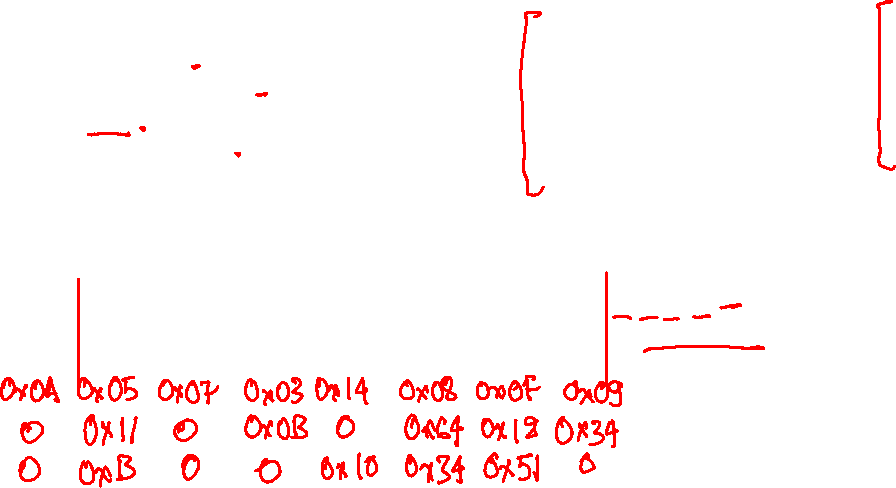 0x0A 0x05 0x07 0x03 0x14 0x08 0x0F 0x09
0 0x11 0 0x0B 0 0x64 0x12 0x34
0 0xB 0 0 0x10 0x34 0x51 0